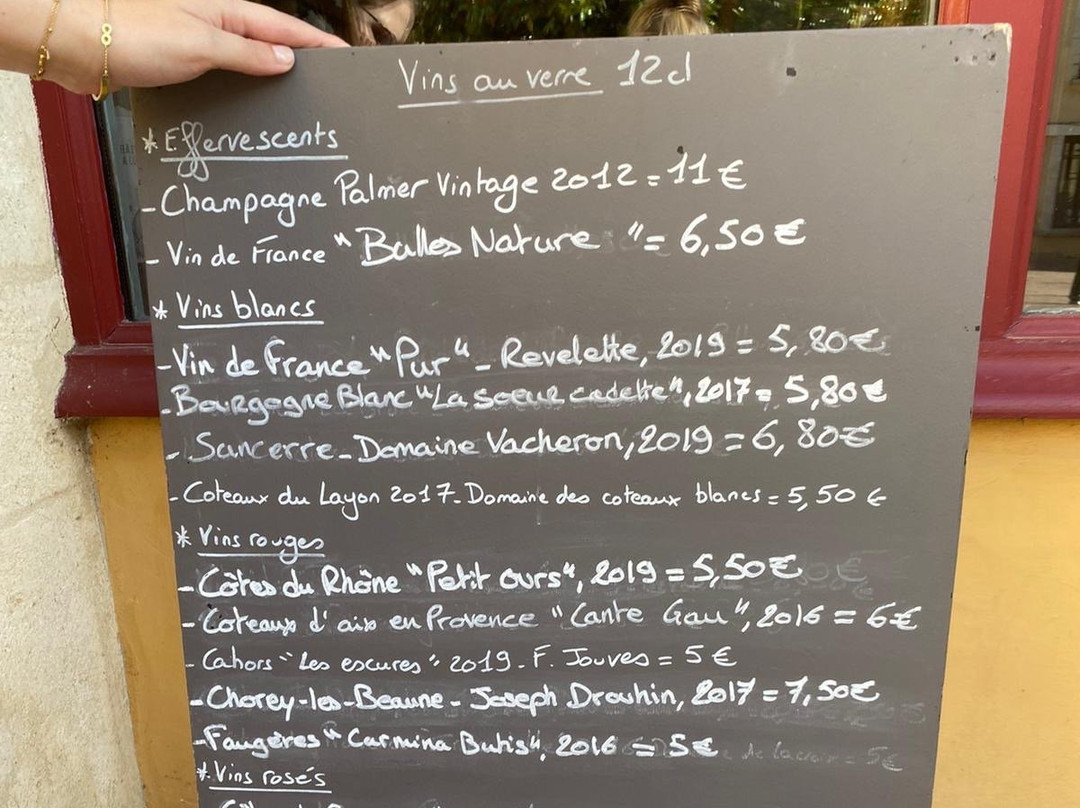 Vins au verre 12cl
* Effervescents
- Champagne Palmer Vintage 2012 = 11 €
- Vin de France "Bulles Nature" = 6,50 €
* Vins blancs
- Vin de France "Pur" - Revelette, 2019 = 5,80€
- Bourgogne Blanc "La soeur cadette", 2017 = 5,80€
- Sancerre - Domaine Vacheron, 2019 = 6,80€
- Coteaux du Layon 2017 - Domaine des coteaux blancs = 5,50 €
* Vins rouges
- Côtes du Rhône "Petit Ours", 2019 = 5,50€
- Coteaux d'aix en Provence "Cante Gau", 2016 = 6€
- Cahors "Les escures" 2019 - F. Jouves = 5 €
- Chorey-les-Beaune - Joseph Drouhin, 2017 = 7,50€
- Faugères "Carmina Butis", 2016 = 5€
* Vins rosés